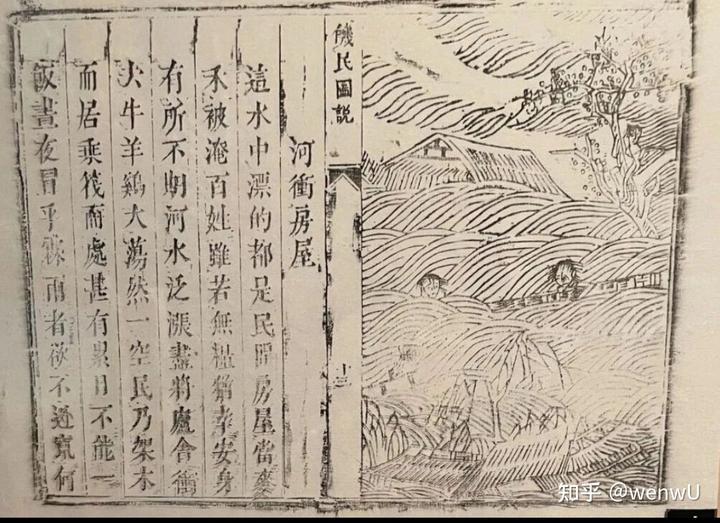 饑民圖説
十三
河衝房屋
這水中漂的都是民間房屋當麥
禾被淹百姓雖若無糧猶幸安身
有所不期河水泛漲盡將廬舍衝
去牛羊鷄犬蕩然一空民乃架木
而居乘筏而處甚有累日不能一
飯晝夜冒乎霖雨者欲不逃竄何
知乎 @wenwU